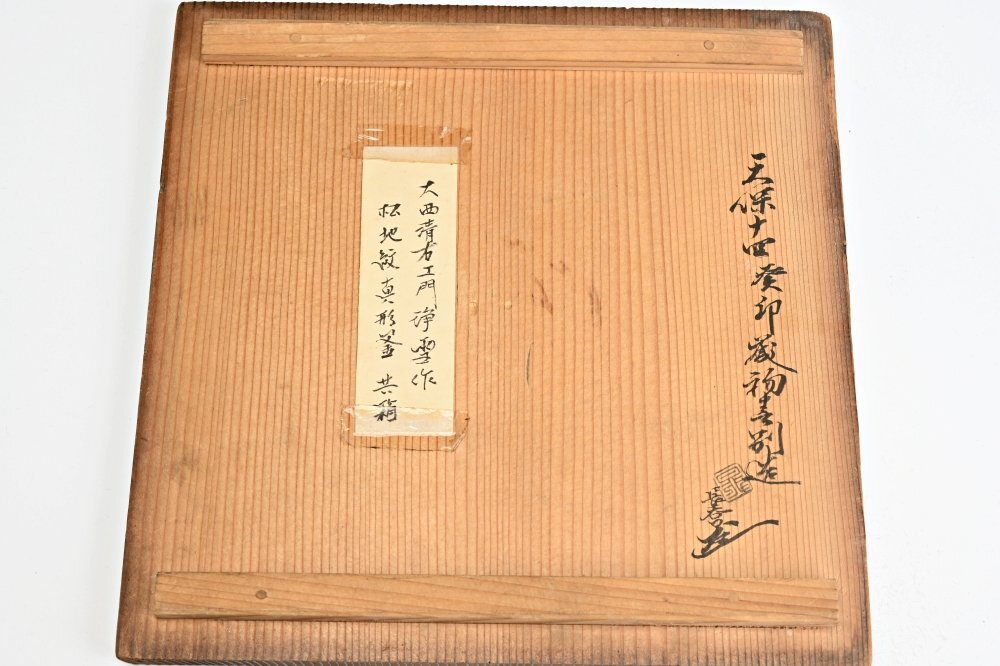 天保十四癸卯歳初春別造
長春
大西清右工門 浄雪作
松地紋真形釜 共箱